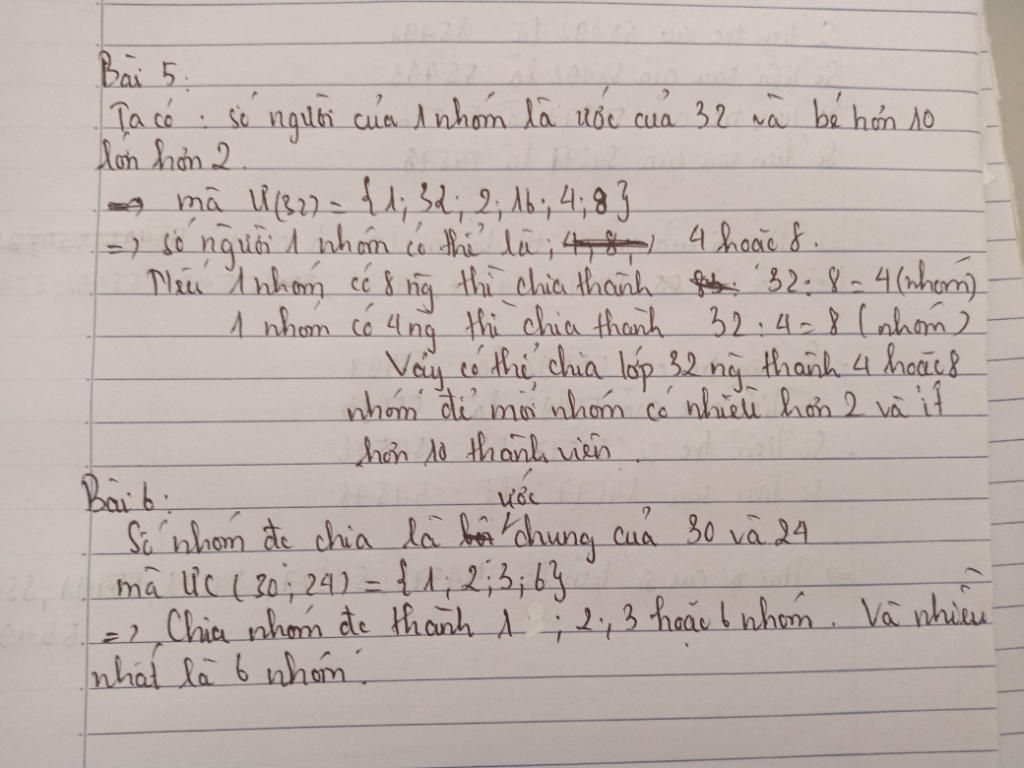 Bài 5:
Ta có: số người của 1 nhóm là ước của 32 và bé hơn 10
lớn hơn 2.
mà Ư(32) = {1; 32; 2; 16; 4; 8}
=> số người 1 nhóm có thể là; 4 hoặc 8.
Nếu 1 nhóm có 8 ng thì chia thành 32 : 8 = 4 (nhóm)
1 nhóm có 4 ng thì chia thành 32 : 4 = 8 (nhóm)
Vậy có thể chia lớp 32 ng thành 4 hoặc 8
nhóm để mỗi nhóm có nhiều hơn 2 và ít
hơn 10 thành viên.
Bài 6:
Số nhóm đc chia là ước chung của 30 và 24
mà ƯC (30; 24) = {1; 2; 3; 6}
=> Chia nhóm đc thành 1; 2; 3 hoặc 6 nhóm. Và nhiều
nhất là 6 nhóm.